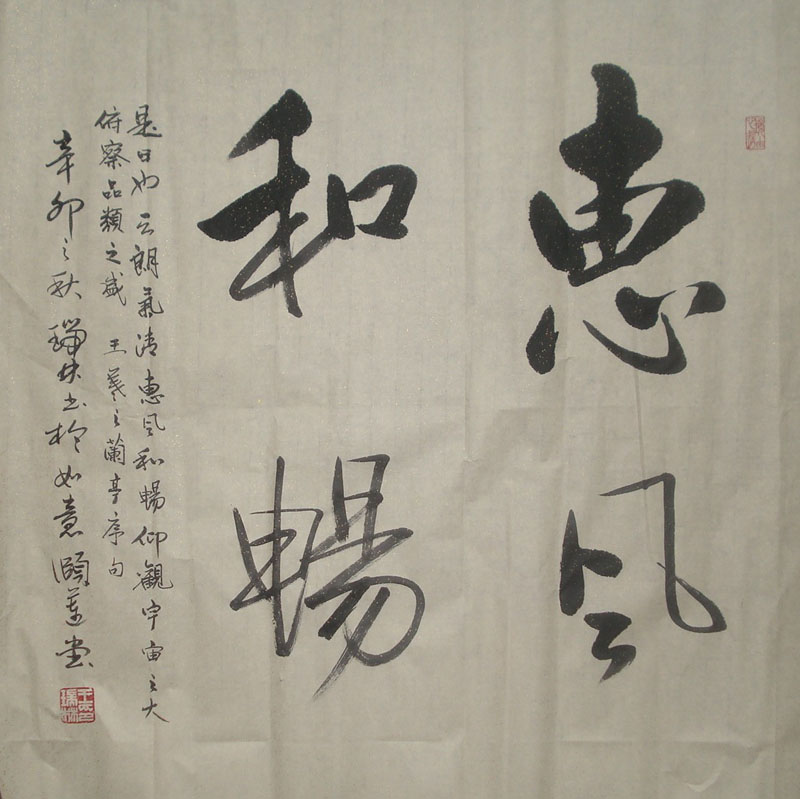 惠风
和暢
是日也云朗氣清惠风和暢仰觀宇宙之大
俯察品類之盛 王羲之蘭亭序句
辛卯之秋 瑞林书於如意頤蓮堂